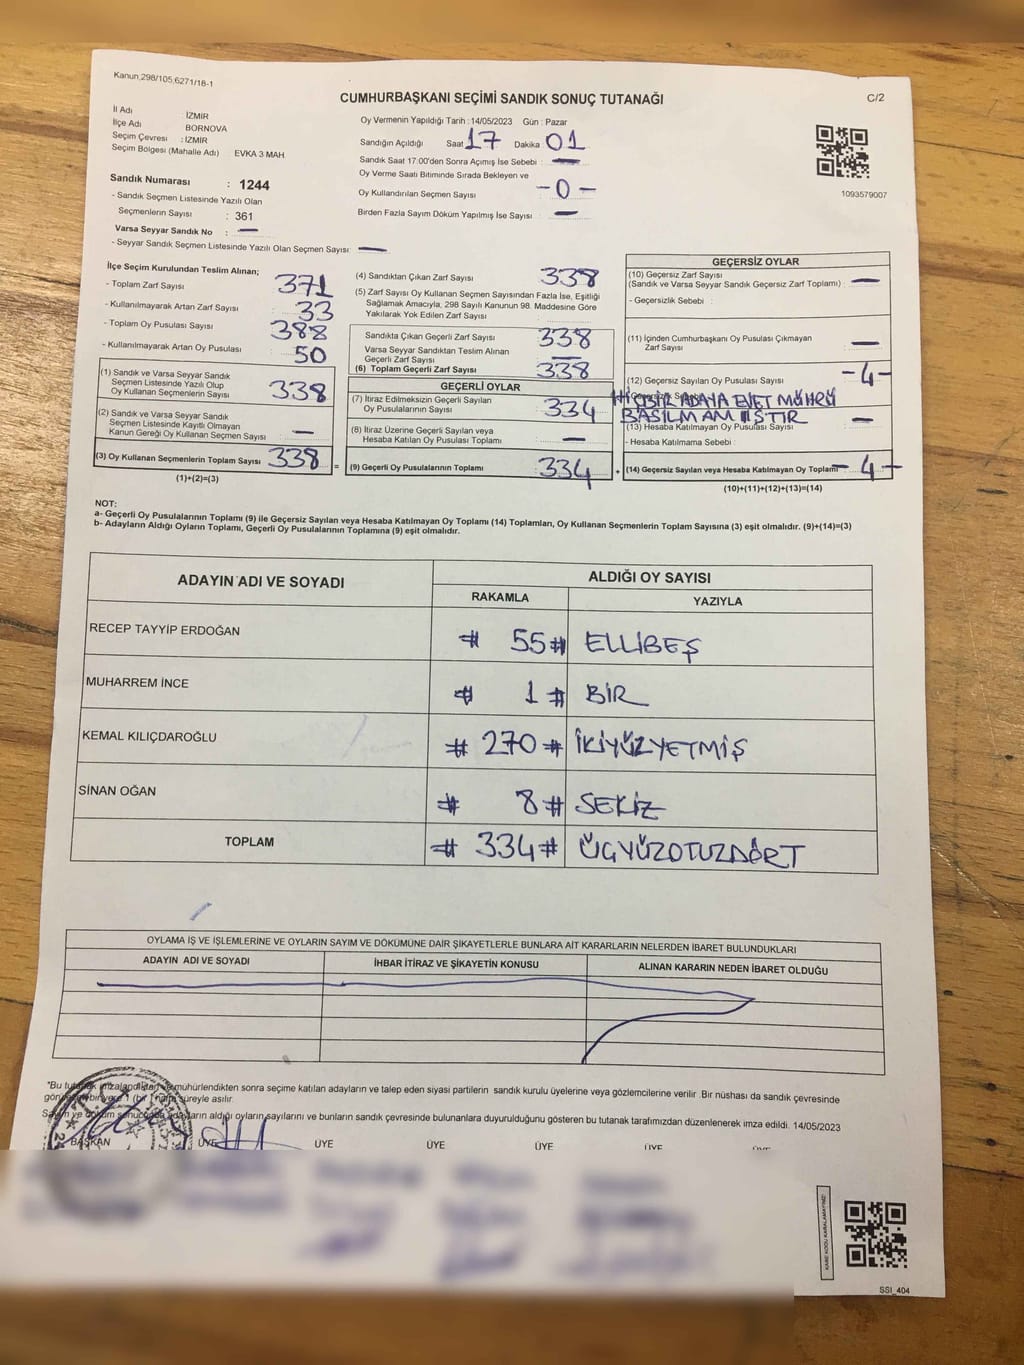 Kanun,298/105,6271/18-1
C/2
CUMHURBAŞKANI SEÇİMİ SANDIK SONUÇ TUTANAĞI
İl Adı İZMİR
İlçe Adı BORNOVA
Seçim Çevresi : İZMİR
Seçim Bölgesi (Mahalle Adı) EVKA 3 MAH
Oy Vermenin Yapıldığı Tarih :14/05/2023 Gün : Pazar
Sandığın Açıldığı Saat 17 Dakika 01
Sandık Saat 17:00'den Sonra Açımış İse Sebebi : —
Oy Verme Saati Bitiminde Sırada Bekleyen ve
Oy Kullandırılan Seçmen Sayısı - 0 -
Birden Fazla Sayım Döküm Yapılmış İse Sayısı : —
1093579007
Sandık Numarası : 1244
- Sandık Seçmen Listesinde Yazılı Olan
Seçmenlerin Sayısı : 361
Varsa Seyyar Sandık No : —
- Seyyar Sandık Seçmen Listesinde Yazılı Olan Seçmen Sayısı: —
İlçe Seçim Kurulundan Teslim Alınan;
- Toplam Zarf Sayısı : 371
- Kullanılmayarak Artan Zarf Sayısı : 33
- Toplam Oy Pusulası Sayısı : 388
- Kullanılmayarak Artan Oy Pusulası : 50
(1) Sandık ve Varsa Seyyar Sandık
Seçmen Listesinde Yazılı Olup
Oy Kullanan Seçmenlerin Sayısı : 338
(2) Sandık ve Varsa Seyyar Sandık
Seçmen Listesinde Kayıtlı Olmayan
Kanun Gereği Oy Kullanan Seçmen Sayısı : —
(3) Oy Kullanan Seçmenlerin Toplam Sayısı : 338 =
(1)+(2)=(3)
(4) Sandıktan Çıkan Zarf Sayısı : 338
(5) Zarf Sayısı Oy Kullanan Seçmen Sayısından Fazla İse, Eşitliği
Sağlamak Amacıyla, 298 Sayılı Kanunun 98. Maddesine Göre
Yakılarak Yok Edilen Zarf Sayısı :
Sandıkta Çıkan Geçerli Zarf Sayısı : 338
Varsa Seyyar Sandıktan Teslim Alınan
Geçerli Zarf Sayısı : —
(6) Toplam Geçerli Zarf Sayısı : 338
GEÇERLİ OYLAR
(7) İtiraz Edilmeksizin Geçerli Sayılan
Oy Pusulalarının Sayısı : 334
(8) İtiraz Üzerine Geçerli Sayılan veya
Hesaba Katılan Oy Pusulası Toplamı : —
(9) Geçerli Oy Pusulalarının Toplamı : 334 +
GEÇERSİZ OYLAR
(10) Geçersiz Zarf Sayısı
(Sandık ve Varsa Seyyar Sandık Geçersiz Zarf Toplamı) : —
- Geçersizlik Sebebi :
(11) İçinden Cumhurbaşkanı Oy Pusulası Çıkmayan
Zarf Sayısı : —
(12) Geçersiz Sayılan Oy Pusulası Sayısı : - 4 -
HİÇBİR ADAYA EVET MÜHRÜ
BASILMAMIŞTIR
(13) Hesaba Katılmayan Oy Pusulası Sayısı : —
- Hesaba Katılmama Sebebi :
(14) Geçersiz Sayılan veya Hesaba Katılmayan Oy Toplamı : - 4 -
(10)+(11)+(12)+(13)=(14)
NOT:
a- Geçerli Oy Pusulalarının Toplamı (9) ile Geçersiz Sayılan veya Hesaba Katılmayan Oy Toplamı (14) Toplamları, Oy Kullanan Seçmenlerin Toplam Sayısına (3) eşit olmalıdır. (9)+(14)=(3)
b- Adayların Aldığı Oyların Toplamı, Geçerli Oy Pusulalarının Toplamına (9) eşit olmalıdır.
ADAYIN ADI VE SOYADI ALDIĞI OY SAYISI
RAKAMLA YAZIYLA
RECEP TAYYİP ERDOĞAN # 55 # ELLİBEŞ
MUHARREM İNCE # 1 # BİR
KEMAL KILIÇDAROĞLU # 270 # İKİYÜZYETMİŞ
SİNAN OĞAN # 8 # SEKİZ
TOPLAM # 334 # ÜÇYÜZOTUZDÖRT
OYLAMA İŞ VE İŞLEMLERİNE VE OYLARIN SAYIM VE DÖKÜMÜNE DAİR ŞİKAYETLERLE BUNLARA AİT KARARLARIN NELERDEN İBARET BULUNDUKLARI
ADAYIN ADI VE SOYADI İHBAR İTİRAZ VE ŞİKAYETİN KONUSU ALINAN KARARIN NEDEN İBARET OLDUĞU
"Bu tutanak imzalandıktan ve mühürlendikten sonra seçime katılan adayların ve talep eden siyasi partilerin sandık kurulu üyelerine veya gözlemcilerine verilir. Bir nüshası da sandık çevresinde
1 (bir) hafta süreyle asılır.
Sayım ve döküm sonucunda adayların aldığı oyların sayılarını ve bunların sandık çevresinde bulunanlara duyurulduğunu gösteren bu tutanak tarafımızdan düzenlenerek imza edildi. 14/05/2023
BAŞKAN ÜYE ÜYE ÜYE ÜYE ÜYE
KARE KODU KARALAMAYINIZ!
SSI_404